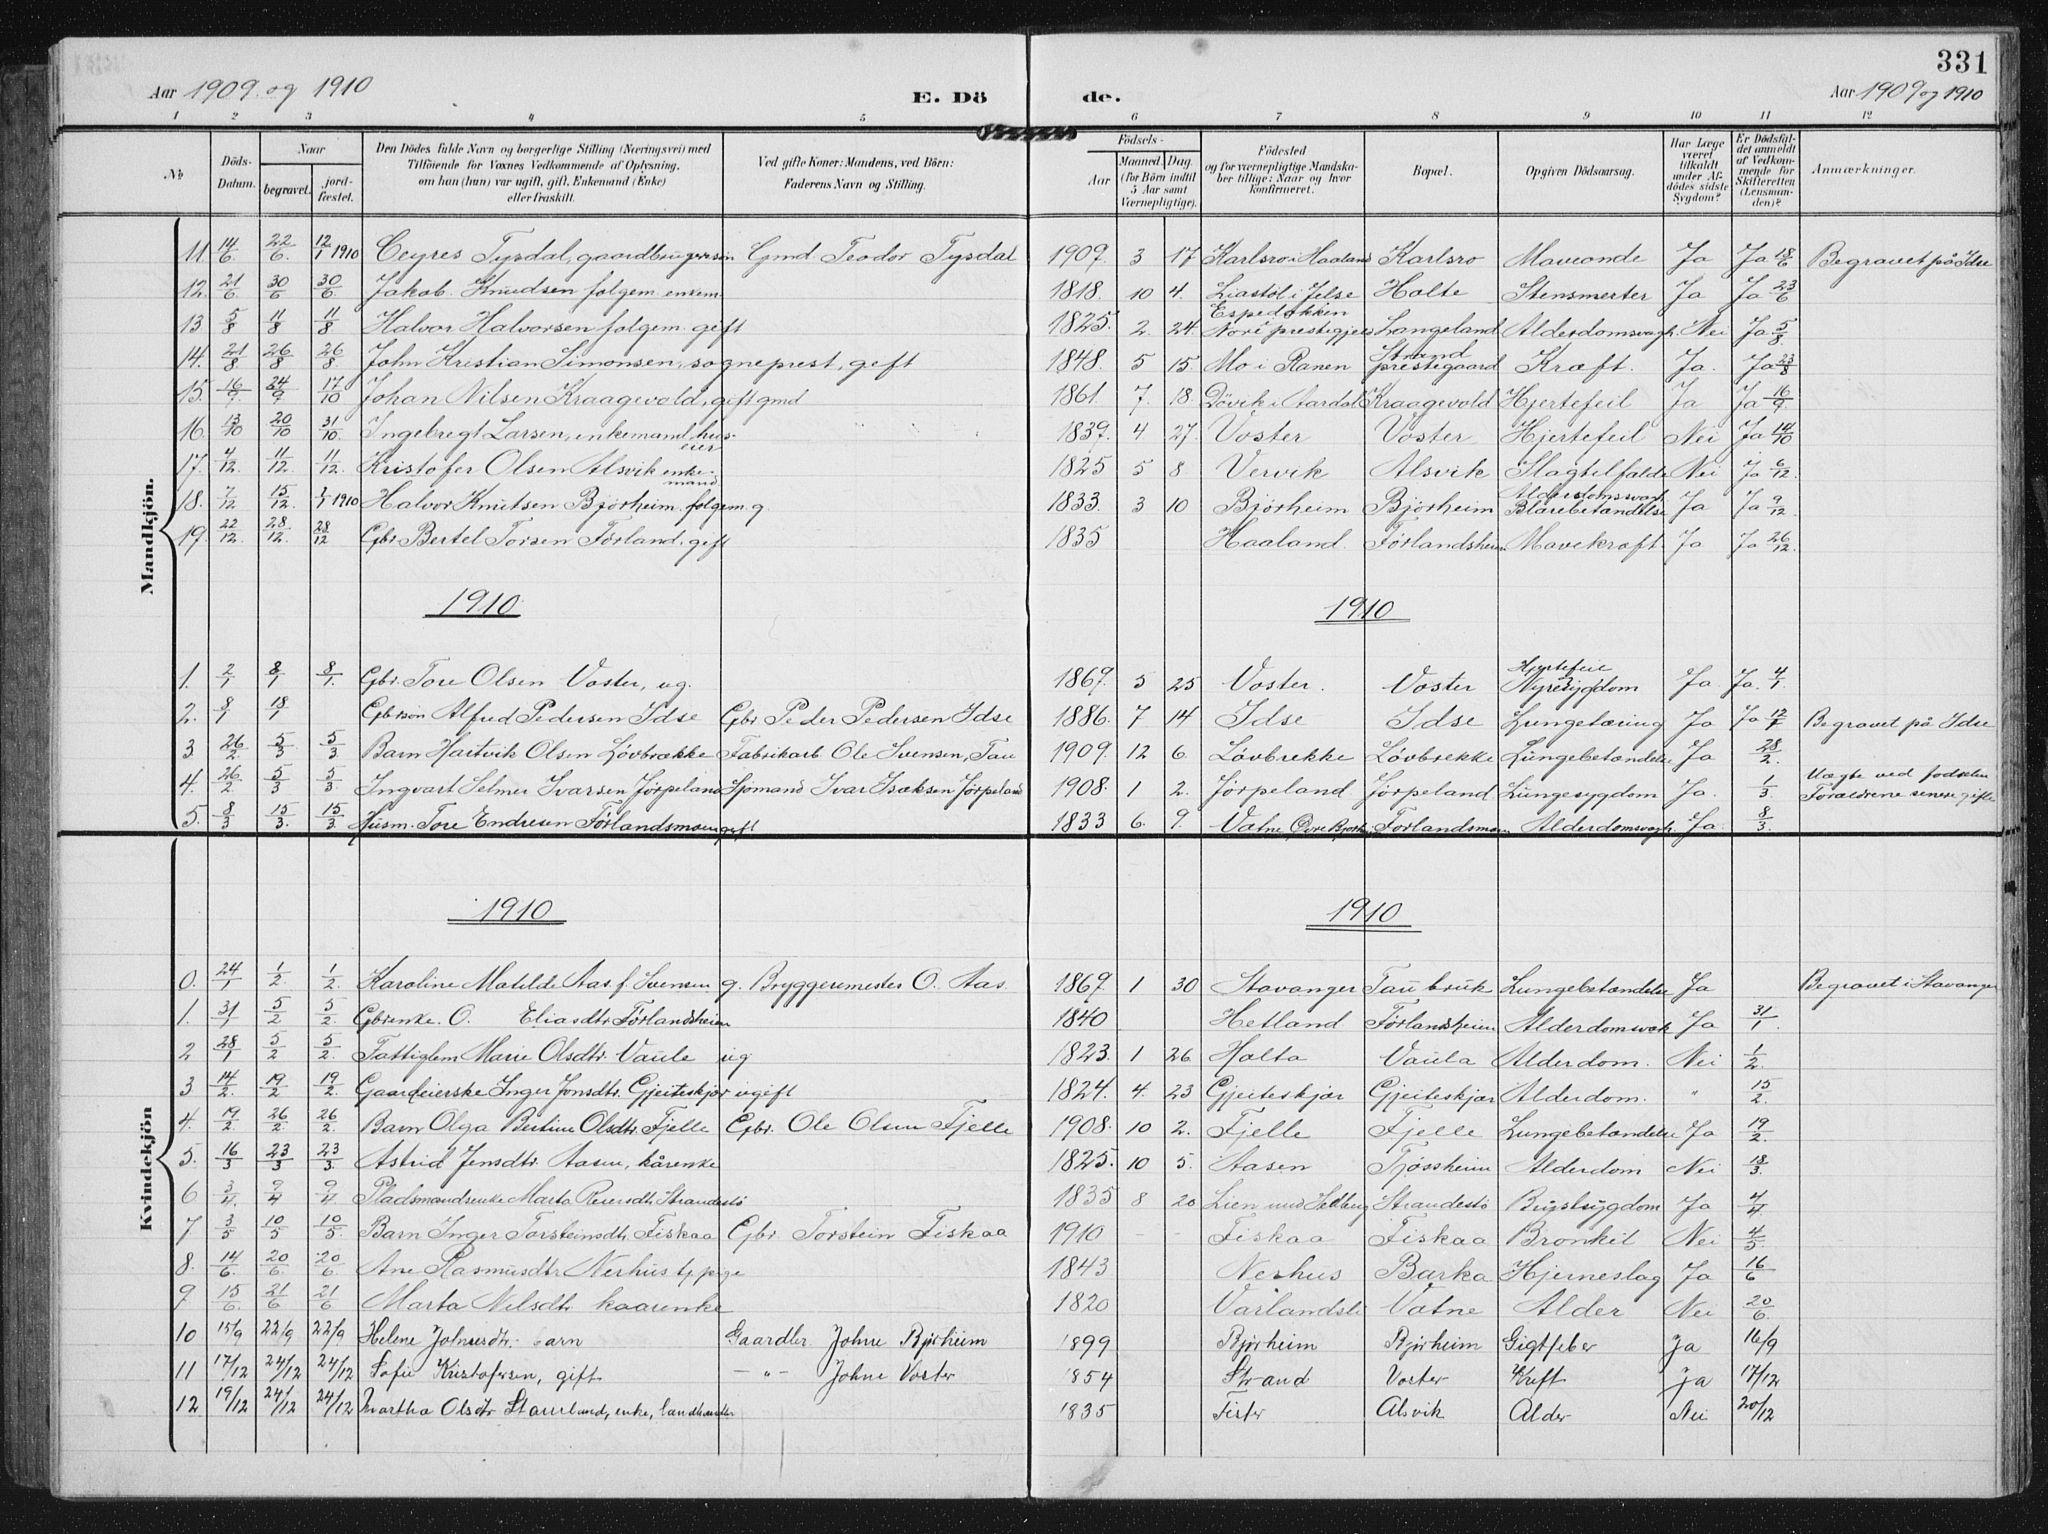 331
Aar 1909 og 1910 E. Dö de. Aar 1909 og 1910
1 2 3 4 5 6 7 8 9 10 11 12
No Döds-Datum. Naar begravet. jord-fæstet. Den Dödes fulde Navn og borgerlige Stilling (Næringsvei) med Tilföiende for Voxnes Vedkommende af Oplysning, om han (hun) var ugift, gift, Enkemand (Enke) eller fraskilt. Ved gifte Koner: Mandens, ved Börn: Faderens Navn og Stilling. Födsels- Aar Maaned. Dag. (for Börn indtil 5 Aar samt Værnepligtige). Födested og for værnepligtige Mandskaber tillige: Naar og hvor konfirmeret. Bopæl. Opgiven Dödsaarsag. Har Læge været tilkaldt under Afdödes sidste Sygdom? Er Dödsfaldet anmeldt af Vedkommende for Skifteretten (Lensmanden)? Anmærkninger.
Mandkjön.
11. 14/6 22/6 12/1 1910 Tysdal, gaardbrugersön Gmd. Teodor Tysdal 1907. 3 17 Karlsro i Haaland Karlsro Maveonde Ja Ja 18/6 Begravet på Idse
12. 21/6 30/6 30/6 Jakob Knudsen folgem. enkem. 1818. 10 4. Liastöl i Jelse Holte Stensmerter Ja Ja 23/6
13 5/8 11/8 11/8 Halvor Halvorsen folgem. gift 1825. 2. 24 prestegjeld Langeland Alderdomsvagh. Nei Ja 5/8
14. 21/8 26/8 26/8 John Kristian Simonsen, sogneprest, gift 1848. 5 15. Mo i Ranen Strand prestegaard Kræft. Ja. Ja 23/8
15. 16/9 24/9 17/10 Johan Nilsen Kraagevold, gift gmd 1861. 7 18. Dövik i Aardal Kraagevold Hjertefeil Ja Ja 16/9
16. 13/10 20/10 31/10 Ingebregt Larsen, enkemand, huseier 1839. 4 27. Voster Voster Hjertefeil Nei Ja 14/10
17. 4/12 11/12 11/12. Kristofer Olsen Alsvik enkemand 1825 5 8 Vervik Alsvik Slagtilfælde Nei Ja 6/12
18. 7/12 15/12. 1/1 1910 Halvor Knutsen Björheim folgem. g. 1833. 3 10 Björheim Björheim Alderdomsvagh. Blærebetændelse Ja Ja 9/12.
19. 22/12 28/12. 28/12 Gbr. Bertel Torsen Förland, gift 1835 Haaland. Förlandsheim Mavekræft. Ja Ja 26/12.
1910 1910
1. 2/1 8/1 8/1. Gbr. Tore Olsen Voster, ug. 1867. 5 25 Voster. Voster Hjertefeil Nyresygdom Ja Ja. 4/1.
2. 8/1 18/1 Gbrsön Alfred Pedersen Idse Gbr Peder Pedersen Idse 1886. 7 14 Idse Idse Lungetæring Ja Ja 12/1 Begravet på Idse
3 26/2 5/3 5/3 Barn Hartvik Olsen Lövbrække Fabrikarb. Ole Svensen, Tau 1909. 12 6. Lövbrekke Lövbrekke Lungebetændelse Ja 28/2.
4. 26/2 5/3 5/3. Ingvart Selmer Ivarsen Jörpeland Sjömand Ivar Isaksen Jörpeland 1908. 1 2. Jörpeland Jörpeland Lungesygdom Ja. 1/3 Uægte ved fodselen Forældrene senere gifte
5. 8/3 15/3. 15/3 Husm. Tore Endresen Förlandsmoen gift 1833 6. 9. Vatne, Övre Björh. Förlandsmoen Alderdomsvagh. Ja. 8/3.
Kvindekjön
1910 1910
0. 24/1 1/2. 1/2. Karoline Matilde Aas f. Svensen g. Bryggeremester O. Aas. 1867. 1 30 Stavanger Tau bruk Lungebetændelse Ja Begravet i Stavanger
1. 31/1 5/2 5/2. Gbrenke. O. Eliasdtr Förlandsheim 1840 Hetland Förlandsheim Alderdomsvak Ja 31/1.
2 28/1 5/2 5/2. Fattiglem Marie Olsdtr. Vaule ug 1823. 1 26 Holta Vaula Alderdom. Nei 1/2.
3 14/2. 19/2 19/2. Gaardeierske Inger Jonsdtr. Gjeiteskjær ugift 1824. 4. 23 Gjeiteskjær Gjeiteskjær Alderdom. " 15/2.
4. 19/2 26/2. 26/2. Barn Olga Bertine Olsdtr. Fjelle Gbr. Ole Olsen Fjelle 1908. 10 2. Fjelle Fjelle Lungebetændelse Ja 19/2
5. 16/3 23/3 23/3 Astrid Jensdtr. Aasen, kårenke 1825. 10 5. Aasen Tjössheim Alderdom Nei 18/3.
6 3/4 9/4 9/4 Pladsmandsenke Marta Reiersdtr. Strandestö 1835 8 20 Lien Strandestö Brystsygdom Ja 4/4
7 3/5 10/5 10/5. Barn Inger Torsteinsdtr. Fiskaa Gbr. Torstein Fiskaa 1910 - - Fiskaa Fiskaa Bronkit Nei 4/5.
8. 14/6. 20/6 20/6 Ane Rasmusdtr Nerhus tj. pige 1843 Nerhus Barka Hjerneslag Ja 16/6
9 15/6. 21/6 21/6 Marta Nilsdtr kaarenke 1820 Varlandsli Vatne Alder Nei 20/6.
10 15/9 22/9 22/9 Helene Johnsedtr. barn Gaardbr Johne Bjørheim 1899 Bjørheim Bjørheim Gigtfeber Ja 16/9
11 17/12 24/12 24/12 Sofie Kristofersen, gift — " — Johne Voster 1854 Strand Voster Kreft Ja 17/12
12 19/12 24/12 24/12 Martha Olsdtr Stauuland, enke, landhandler 1835 Fister Alsvik Alder Nei 20/12